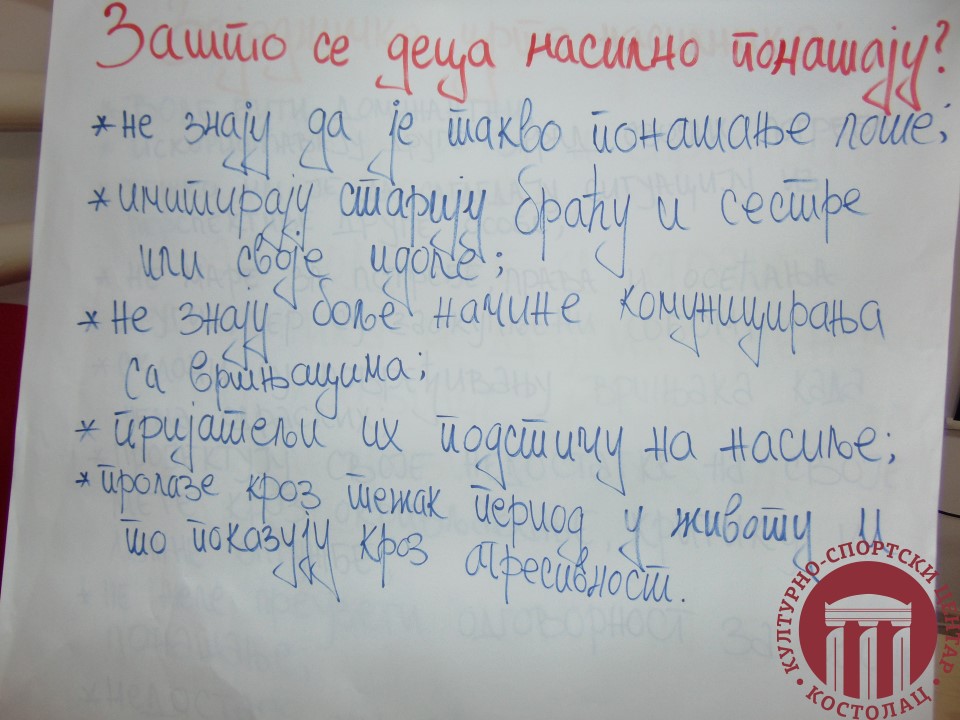 Зашто се деца насилно понашају?
*не знају да је такво понашање лоше;
*имитирају старију браћу и сестре
или своје идоле;
*не знају боље начине комуницирања
са вршњацима;
*пријатељи их подстичу на насиље;
*пролазе кроз тежак период у животу и
то показују кроз агресивност.
КУЛТУРНО-СПОРТСКИ ЦЕНТАР • КОСТОЛАЦ •